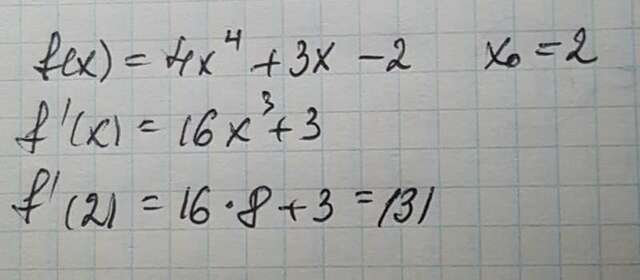 f(x) = 4x⁴ + 3x - 2 x₀ = 2
f'(x) = 16x³ + 3
f'(2) = 16 · 8 + 3 = 131